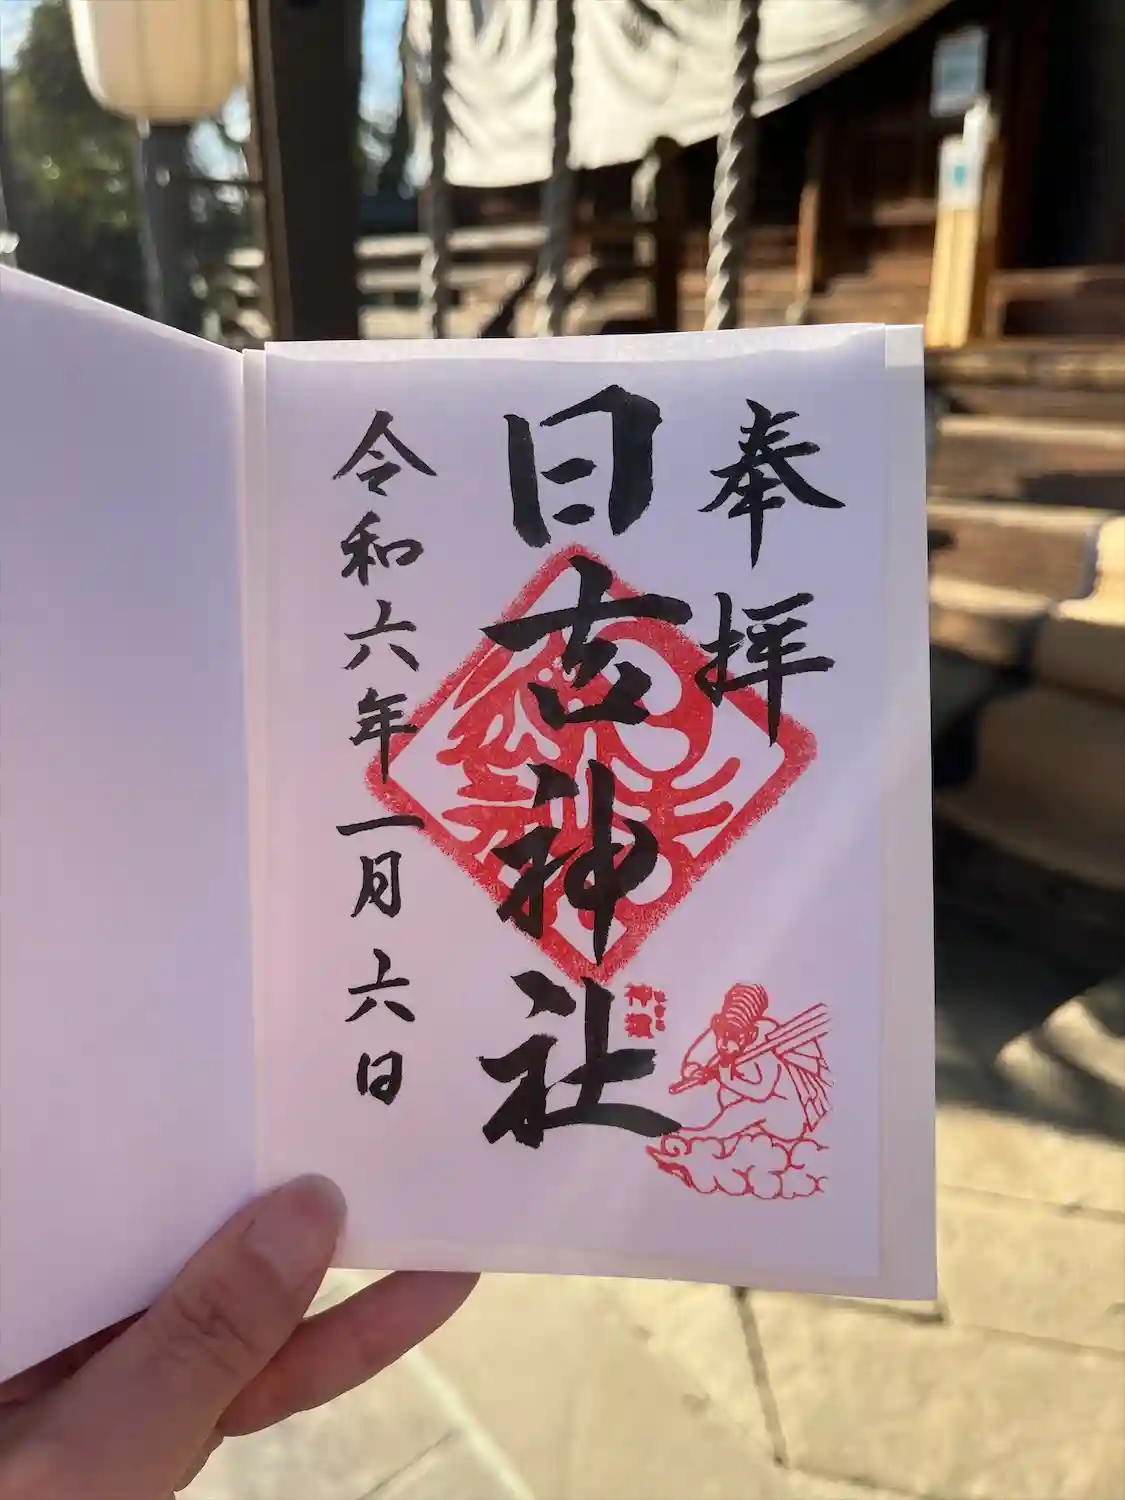 奉拝
日吉神社
令和六年一月六日
神猿
まさる